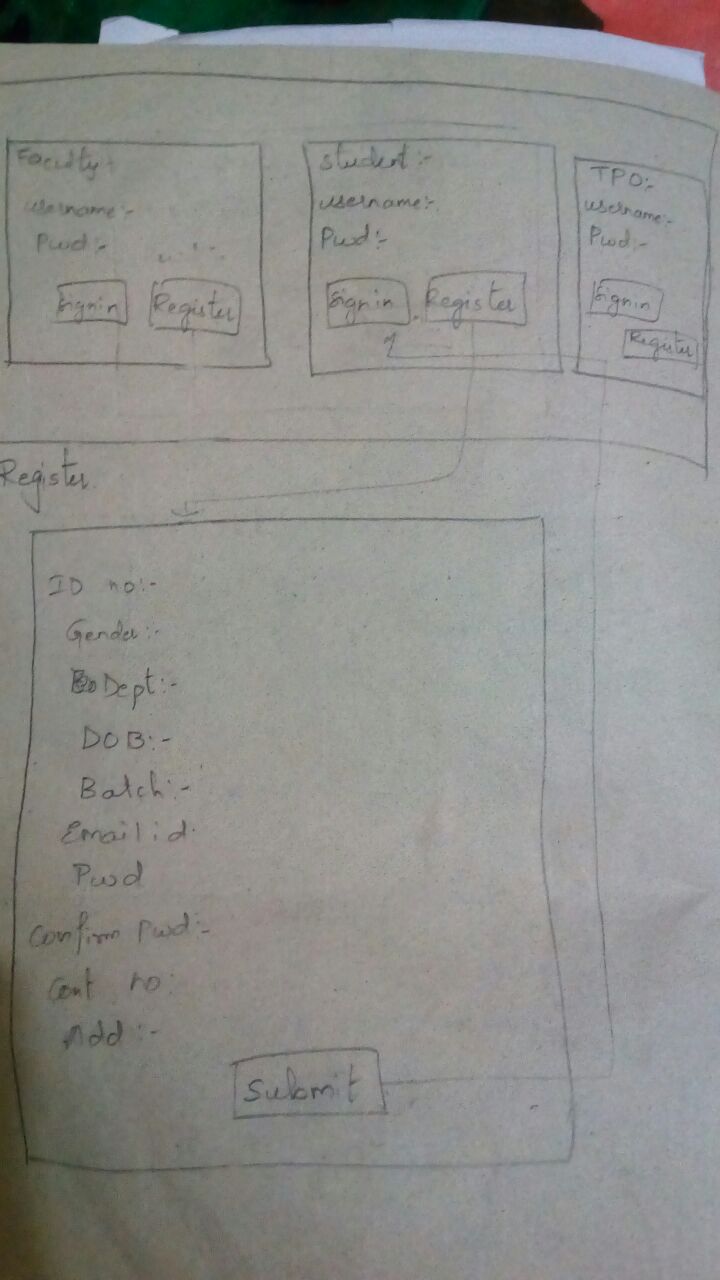 Faculty:-
username:-
Pwd:-
Signin Register
student:-
username:-
Pwd:-
Signin Register
TPO:-
username:-
Pwd:-
Signin
Register
Register
ID no:-
Gender:-
Dept:-
DOB:-
Batch:-
Email id:
Pwd
Confirm Pwd:-
Cont no:
Add:-
Submit